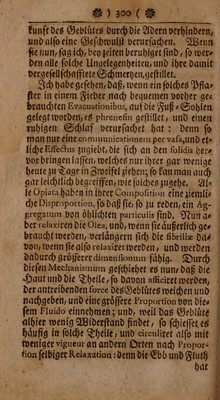 ) 300 (
kunft des Geblütes durch die Adern verhindern,
und also eine Geschwulst verursachen. Wenn
sie nun, sag ich, bey zeiten beruhiget sind, so wer-
den alle solche Ungelegenheiten, und ihre damit
vergesellschafftete Schmertzen, gestillet.
Ich habe gesehen, daß, wenn ein solches Pfla-
ster in einem Fieber nach bequemen vorher ge-
brauchten Evacuationibus, auf die Fuß-Sohlen
gelegt worden, es phrenesin gestillet, und einen
ruhigen Schlaf verursachet hat: denn so
man nur eine communicationem per vasa, und et-
liche Effectus zugiebt, die sich an den solidis her-
vor bringen lassen, welches nur ihrer gar wenige
heute zu Tage in Zweifel ziehen; so kan man auch
gar leichtlich begreiffen, wie solches zugehe. Al-
le Opiata haben in ihrer Composition eine ziemli-
che Disproportion, so daß sie, so zu reden, ein Ag-
gregatum von öhlichten particulis sind. Nun a-
ber relaxiren die Olea, und, wenn sie äusserlich ge-
braucht werden, verlängern sich die fibrillæ da-
von, wenn sie also relaxiret werden, und werden
dadurch grösserer dimensionum fähig. Durch
diesen Mechanismum geschiehet es nun, daß die
Haut und die Theile, so davon afficiret werden,
der antreibenden force des Geblütes weichen und
nachgeben, und eine grössere Proportion von die-
sem Fluido einnehmen; und, weil das Geblüte
alhier wenig Widerstand findet, so schiesset es
häufig in solche Theile, und circuliret also mit
weniger vigueur an andern Orten nach Propor-
tion selbiger Relaxation: denn die Ebb und Fluth
hat